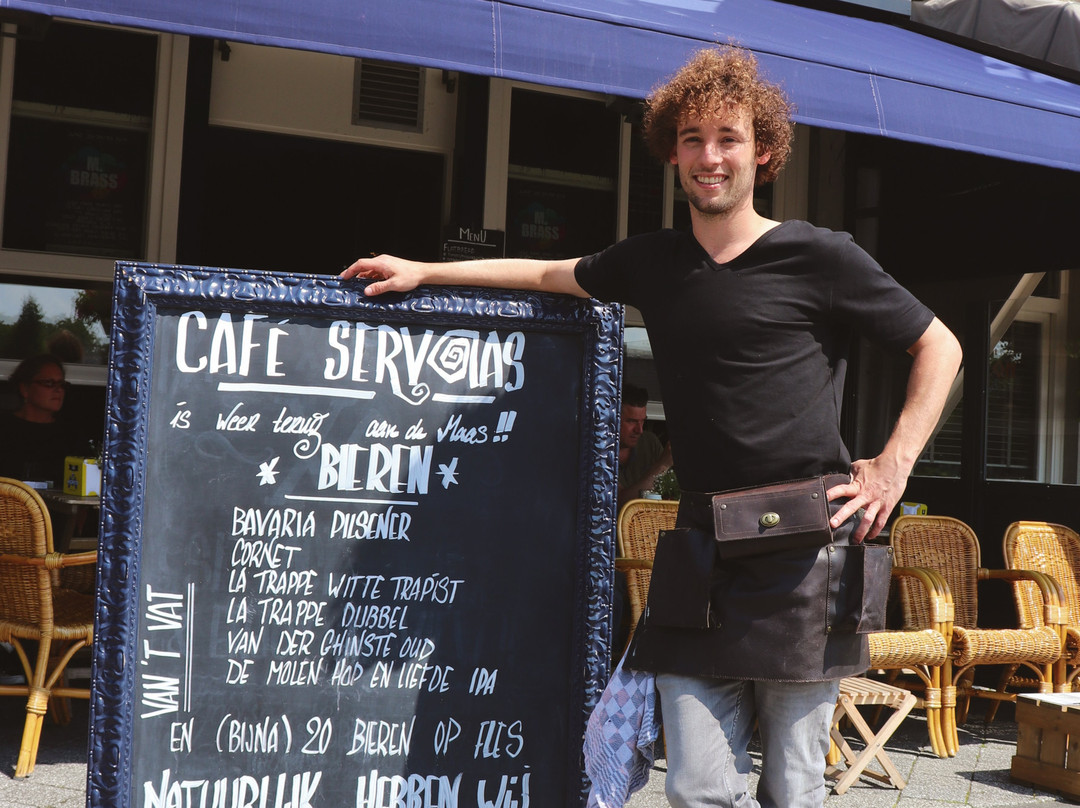 CAFÉ SERVAAS
is weer terug aan de Maas!!
BIEREN
BAVARIA PILSENER
CORNET
LA TRAPPE WITTE TRAPIST
LA TRAPPE DUBBEL
VAN DER GHINSTE OUD
DE MOLEN HOP EN LIEFDE IPA
VAN'T VAT
EN (BIJNA) 20 BIEREN OP FLES
NATUURLIJK HEBBEN WIJ
MENU
BRASS
BRASS